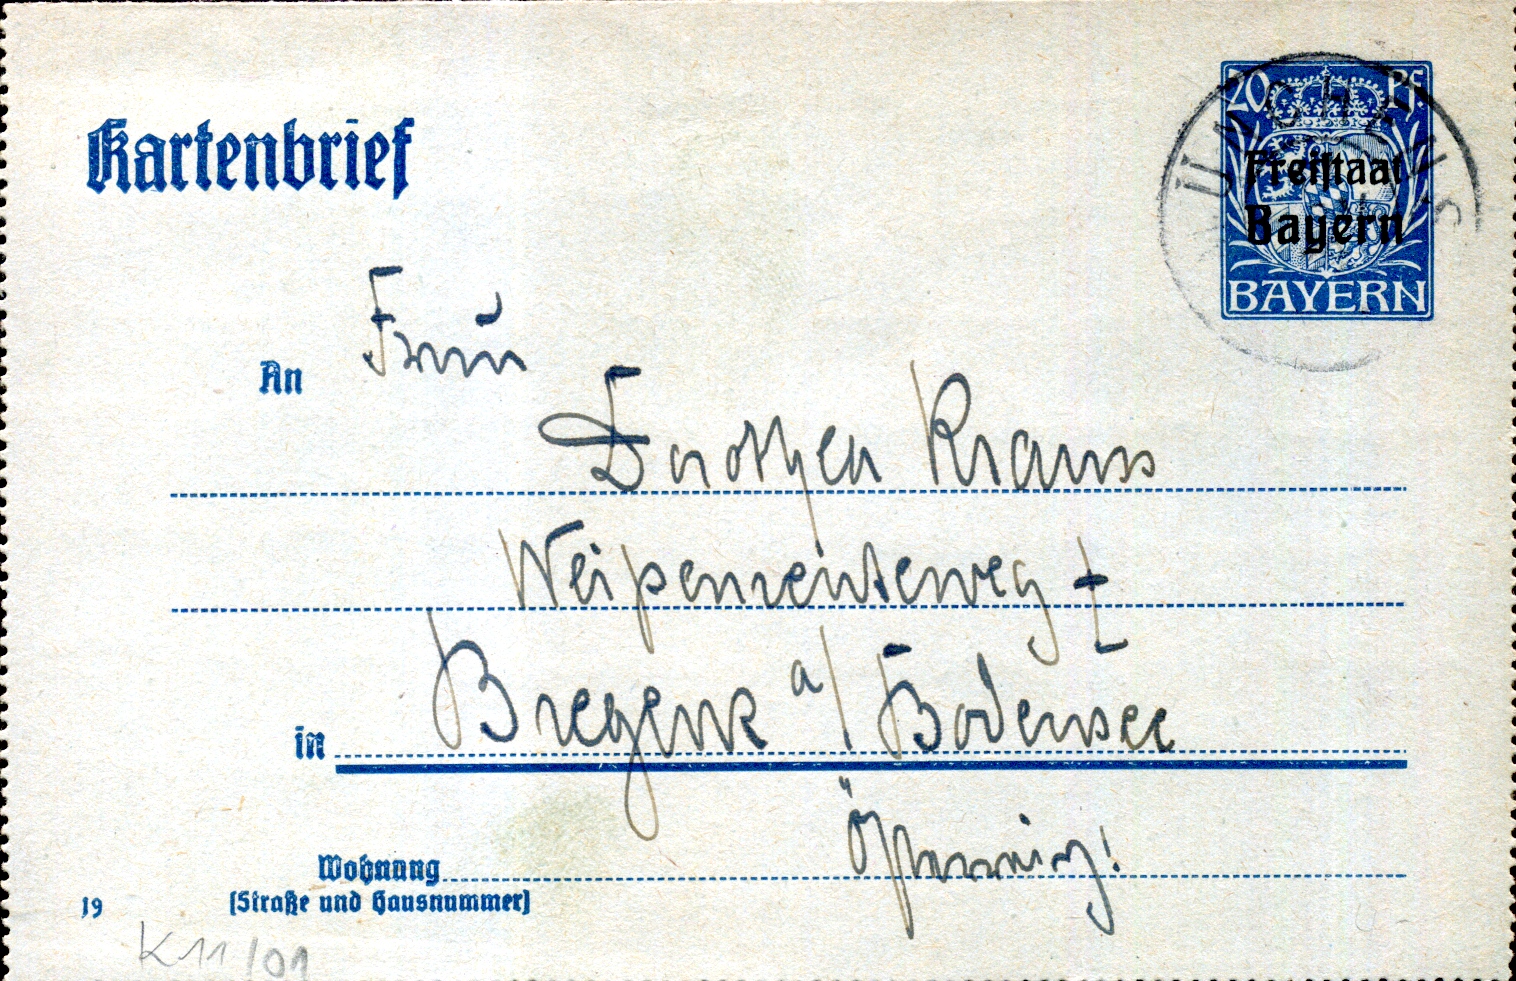 Kartenbrief
20 Pf.
MÜNCHEN
Freistaat
Bayern
BAYERN
An Frau
Dorothea Krauss
in Bregenz a/ Bodensee
Österreich!
Wohnung
(Straße und Hausnummer)
19
K 11/01